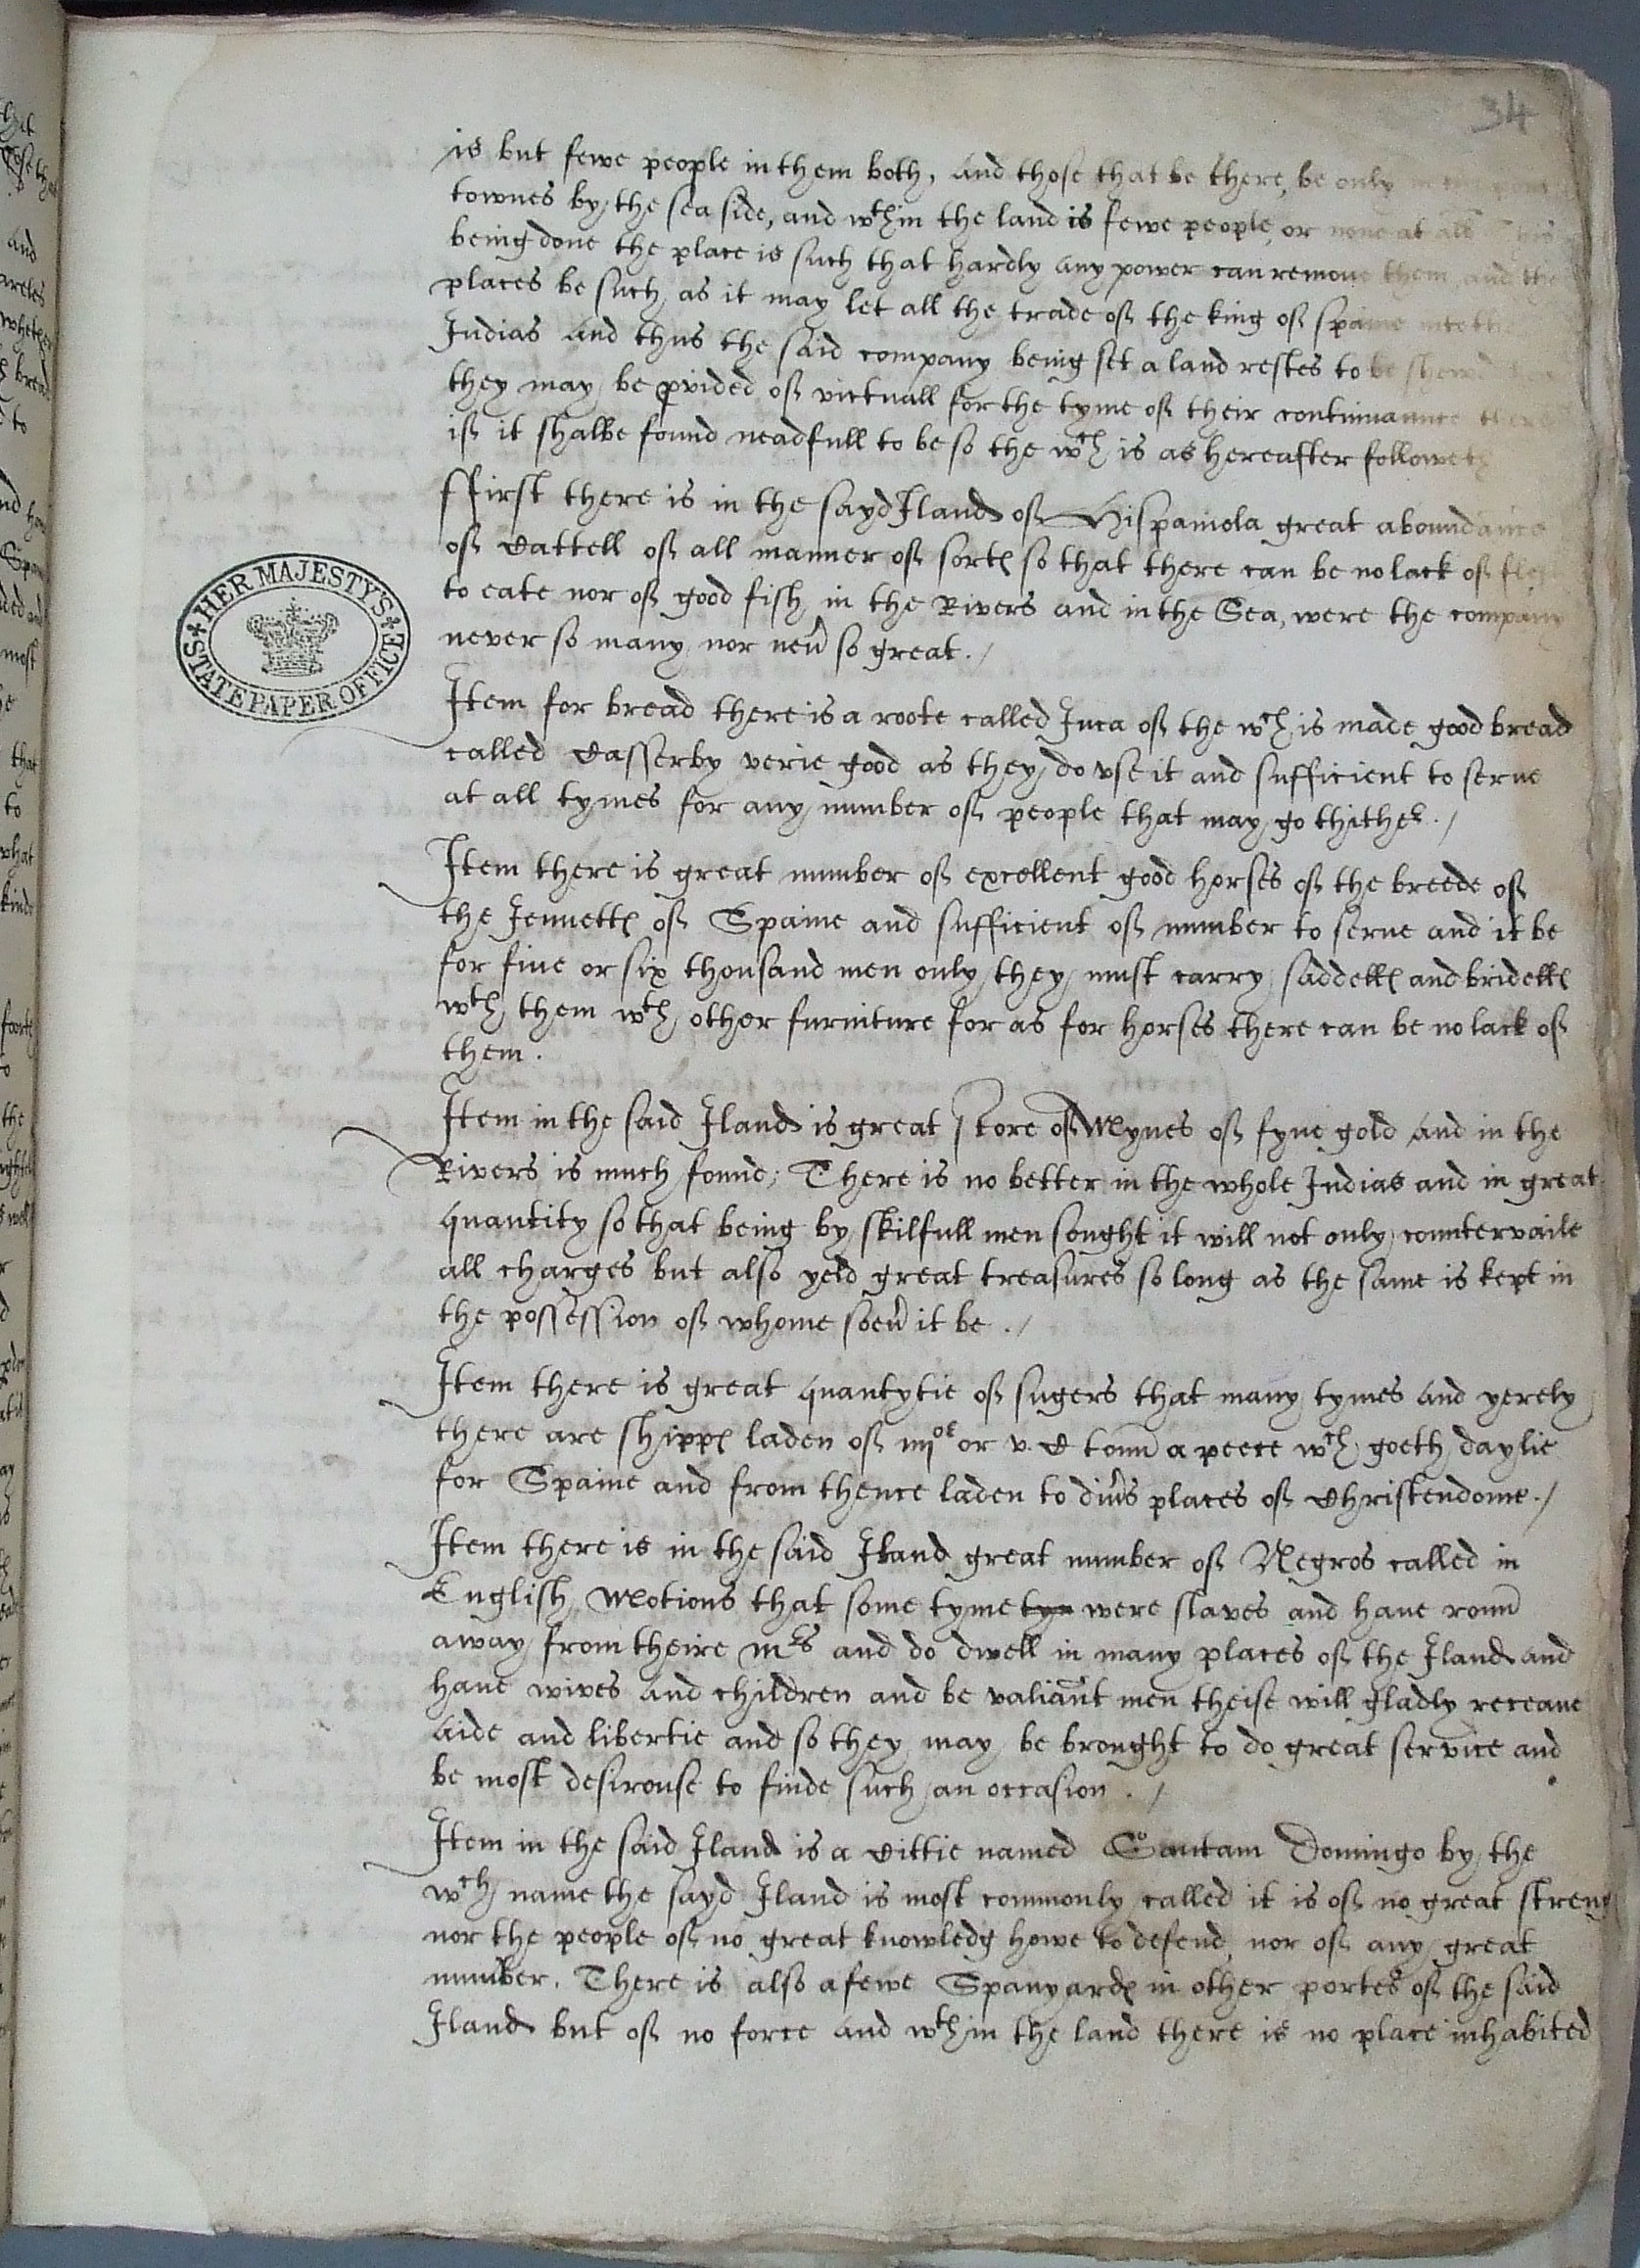 34
is but fewe people in them both, and those that be there, be only in the
townes by the sea side, and wth in the land is fewe people, or none at all this
being done the place is such that hardly any power can remoue them and the
places be such as it may let all the trade of the king of spaine into the
Indias and thus the said company being set a land restes to be shewd
they may be pvided of victuall for the tyme of their continuaunce there
if it shalbe found neadfull to be so the wch is as hereafter followeth
ffirst there is in the sayd Iland of Hispaniola great aboundance
of Cattell of all manner of sortes so that there can be no lack of
to eate nor of good fish in the Rivers and in the Sea, were the company
never so many nor neũ so great ./
Item for bread there is a roote called Iuca of the wch is made good bread
called Casserby verie good as they do vse it and sufficient to serue
at all tymes for any number of people that may go thither ./
Item there is great number of excellent good horses of the breede of
the Jennettes of Spaine and sufficient of number to serue and it be
for fiue or six thousand men only they must carry saddelles and bridelles
wth them wth other furniture for as for horses there can be no lack of
them .
Item in the said Iland is great store of Mynes of fyne gold and in the
Rivers is much found; There is no better in the whole Indias and in great
quantity so that being by skilfull men sought it will not only countervaile
all charges but also yeld great treasures so long as the same is kept in
the possession of whome soeũ it be ./
Item there is great quantytie of sugers that many tymes and yerely
there are shippes laden of iiijor or v. C tonn a peece wch goeth daylie
for Spaine and from thence laden to diũs places of Christendome ./
Item there is in the said Iland great number of Negros called in
English Motions that some tyme tyn were slaves and haue ronn
away from theire mrs and do dwell in many places of the Iland and
haue wives and children and be valiant men theise will gladly receaue
aide and libertie and so they may be brought to do great service and
be most desirouse to finde such an occasion ./
Item in the said Iland is a Cittie named Santam Domingo by the
wch name the sayd Iland is most commonly called it is of no great streng
nor the people of no great knowledg howe to defend nor of any great
number. There is also a fewe Spanyardes in other portes of the said
Iland but of no force and wth in the land there is no place inhabited
HER MAJESTY'S
STATE PAPER OFFICE